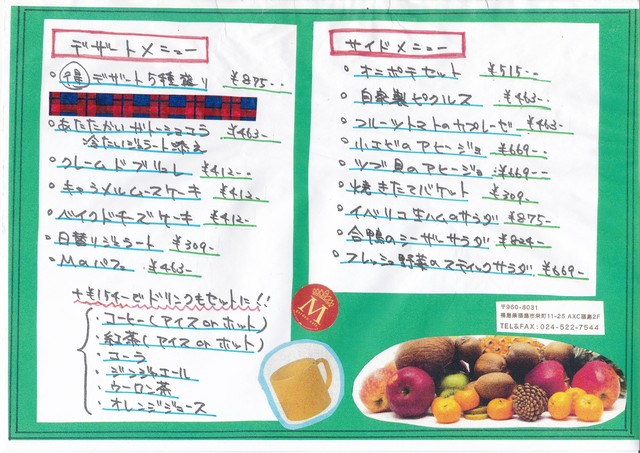 デザートメニュー
デザート5種盛り ¥875-
あたたかいガトーショコラ ¥463-
冷たいジェラート添え
クレームドブリュレ ¥412-
キャラメルムースケーキ ¥412-
ベイクドチーズケーキ ¥412-
日替りジェラート ¥309-
Mのパフェ ¥463-
+¥154-でドリンクもセットに!!
・コーヒー(アイスorホット)
・紅茶(アイスorホット)
・コーラ
・ジンジャエール
・ウーロン茶
・オレンジジュース
サイドメニュー
オニポテセット ¥515-
自家製ピクルス ¥463-
フルーツトマトのカプレーゼ ¥463-
小エビのアヒージョ ¥669-
ツブ貝のアヒージョ ¥669-
焼きたてバケット ¥309-
イベリコ生ハムのサラダ ¥875-
合鴨のシーザーサラダ ¥824-
フレッシュ野菜のスティックサラダ ¥669-
M
〒960-8031
福島県福島市栄町11-25 AXC福島2F
TEL&FAX:024-522-7544